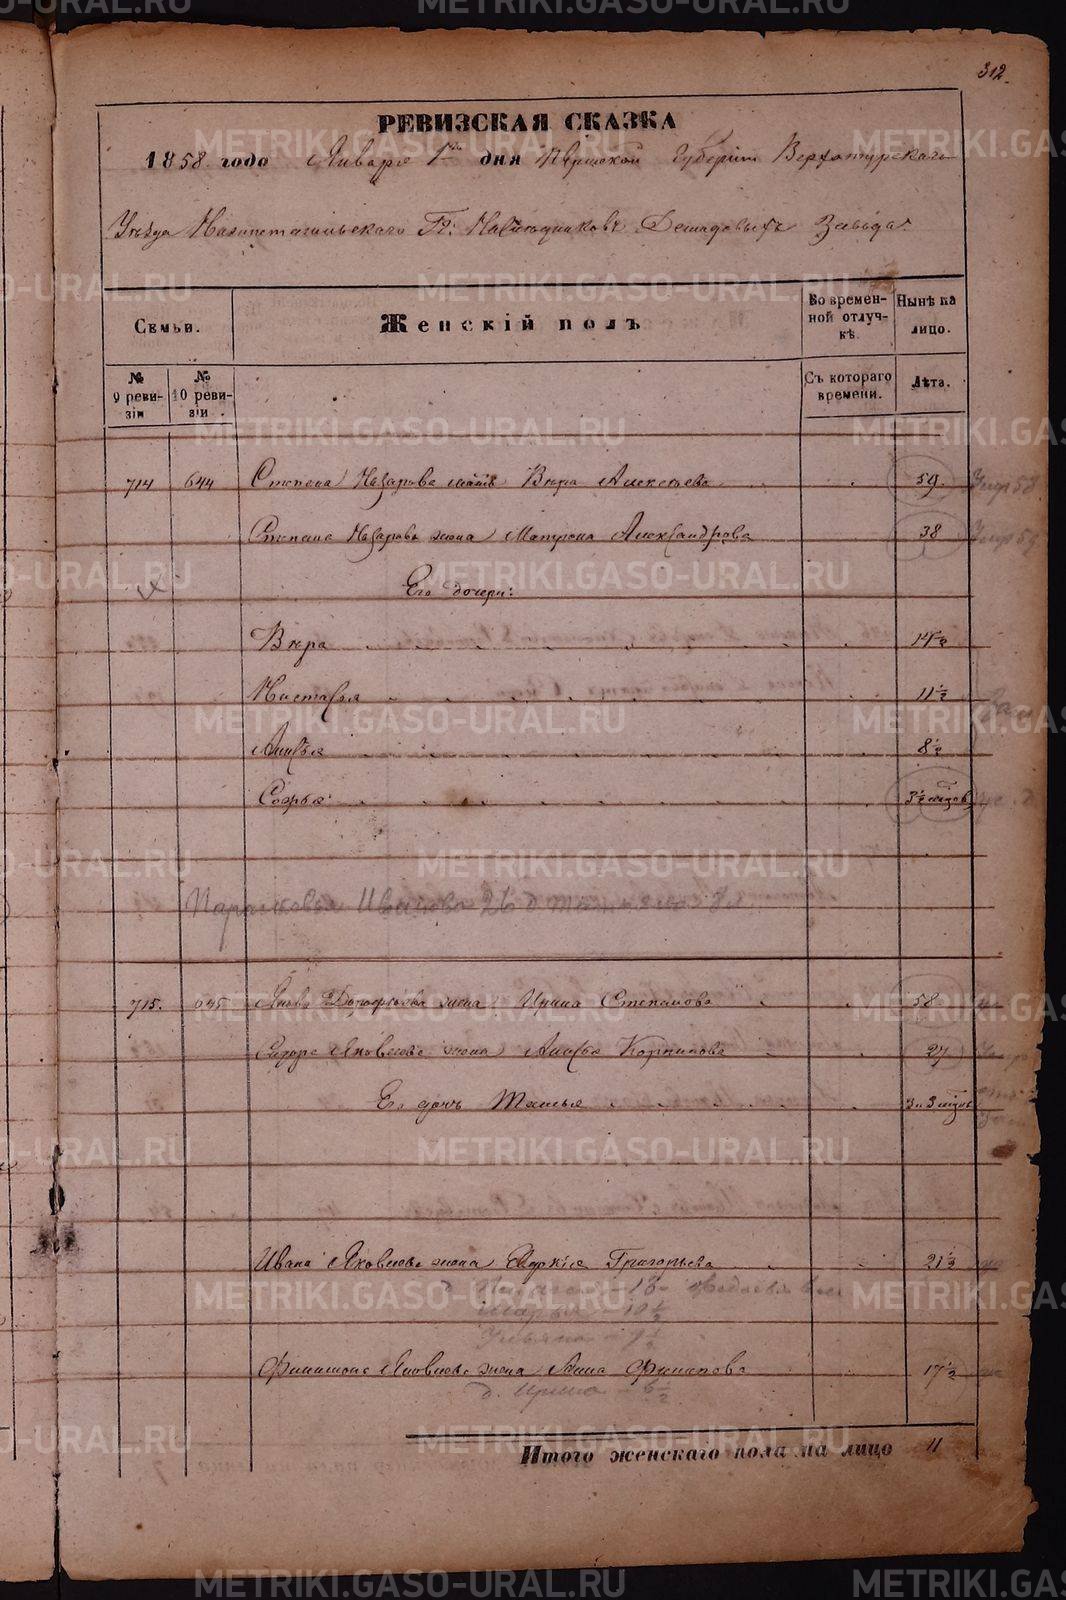 312.
РЕВИЗСКАЯ СКАЗКА
1858 года Января 1го дня Пермской Губернии Верхотурского
Уѣзда Нижнетагильскаго Гг: Наслѣдниковъ Демидовыхъ Завода.
Семьи. Женскій полъ Во времен-ной отлуч-кѣ. Нынѣ на лицо.
№ 9 реви-зіи № 10 реви-зіи Съ котораго времени. Лѣта.
714 644 Степана Назарова мать Вѣра Алексѣева 59. Умер 58
Степана Назарова жена Матрена Александрова 38 Умер 59
Его дочери:
Вѣра 14½
Настасья 11½
Анисья 8½
Софья 3½ мѣсцов
Парасковья Иванова 26 д 8 л
715. 645 Якова Дорофѣева жена Ирина Степанова 58
Сидора Яковлева жена Анисья Корнилова 27
Его дочь Татья 3 и 3 мѣсцов
Ивана Яковлева жена Евдокія Григорьева 21½
13
Марья 10½
Ульяна
Филимона Яковлева жена Анна Филипова 17½
д. Ирина 6½
Итого женскаго пола на лицо 11
METRIKI.GASO-URAL.RU